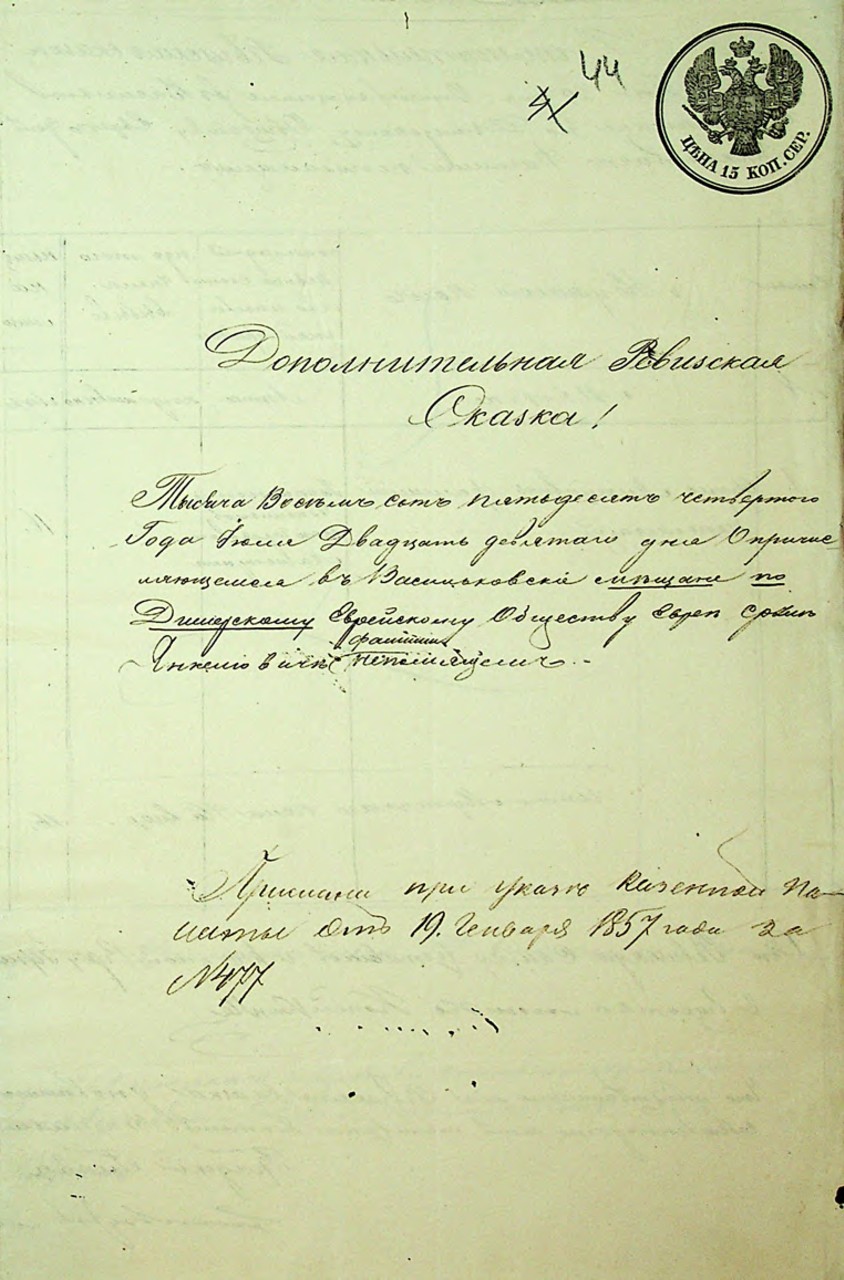 44
ЦѢНА 15 КОП. СЕР.
Дополнительная Ревизская
Сказка!
Тысяча Восемь сотъ пятьдесятъ четвертого
Года Іюля Двадцать девятаго дня О причис-
ляющемся въ Васильковскіе мѣщане по
Димерскому Еврейскому Обществу Евреи
Янкелювичѣ
Прислана при указѣ Казенной Па-
латы отъ 19. Генваря 1857 года за
№ 477